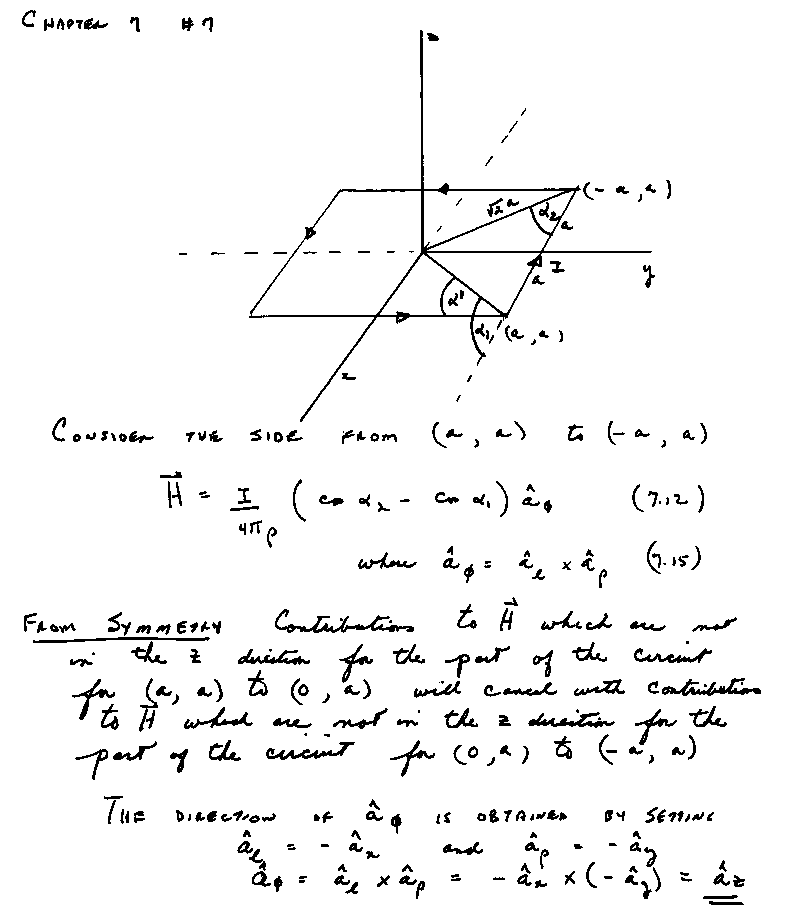 CHAPTER 7 #7
z
(-a, a)
√2 a
α2
a
I
a
y
α'
α1
(a, a)
CONSIDER THE SIDE FROM (a, a) to (-a, a)
H⃗ = I/4πρ (cos α2 - cos α1) âϕ (7.12)
where âϕ = âl × âρ (7.15)
FROM SYMMETRY Contributions to H⃗ which are not
in the z direction for the part of the circuit
for (a, a) to (0, a) will cancel with contributions
to H⃗ which are not in the z direction for the
part of the circuit for (0, a) to (-a, a)
THE DIRECTION OF âϕ IS OBTAINED BY SETTING
âl = - âx and âρ = - ây
âϕ = âl × âρ = - âx × (- ây) = âz